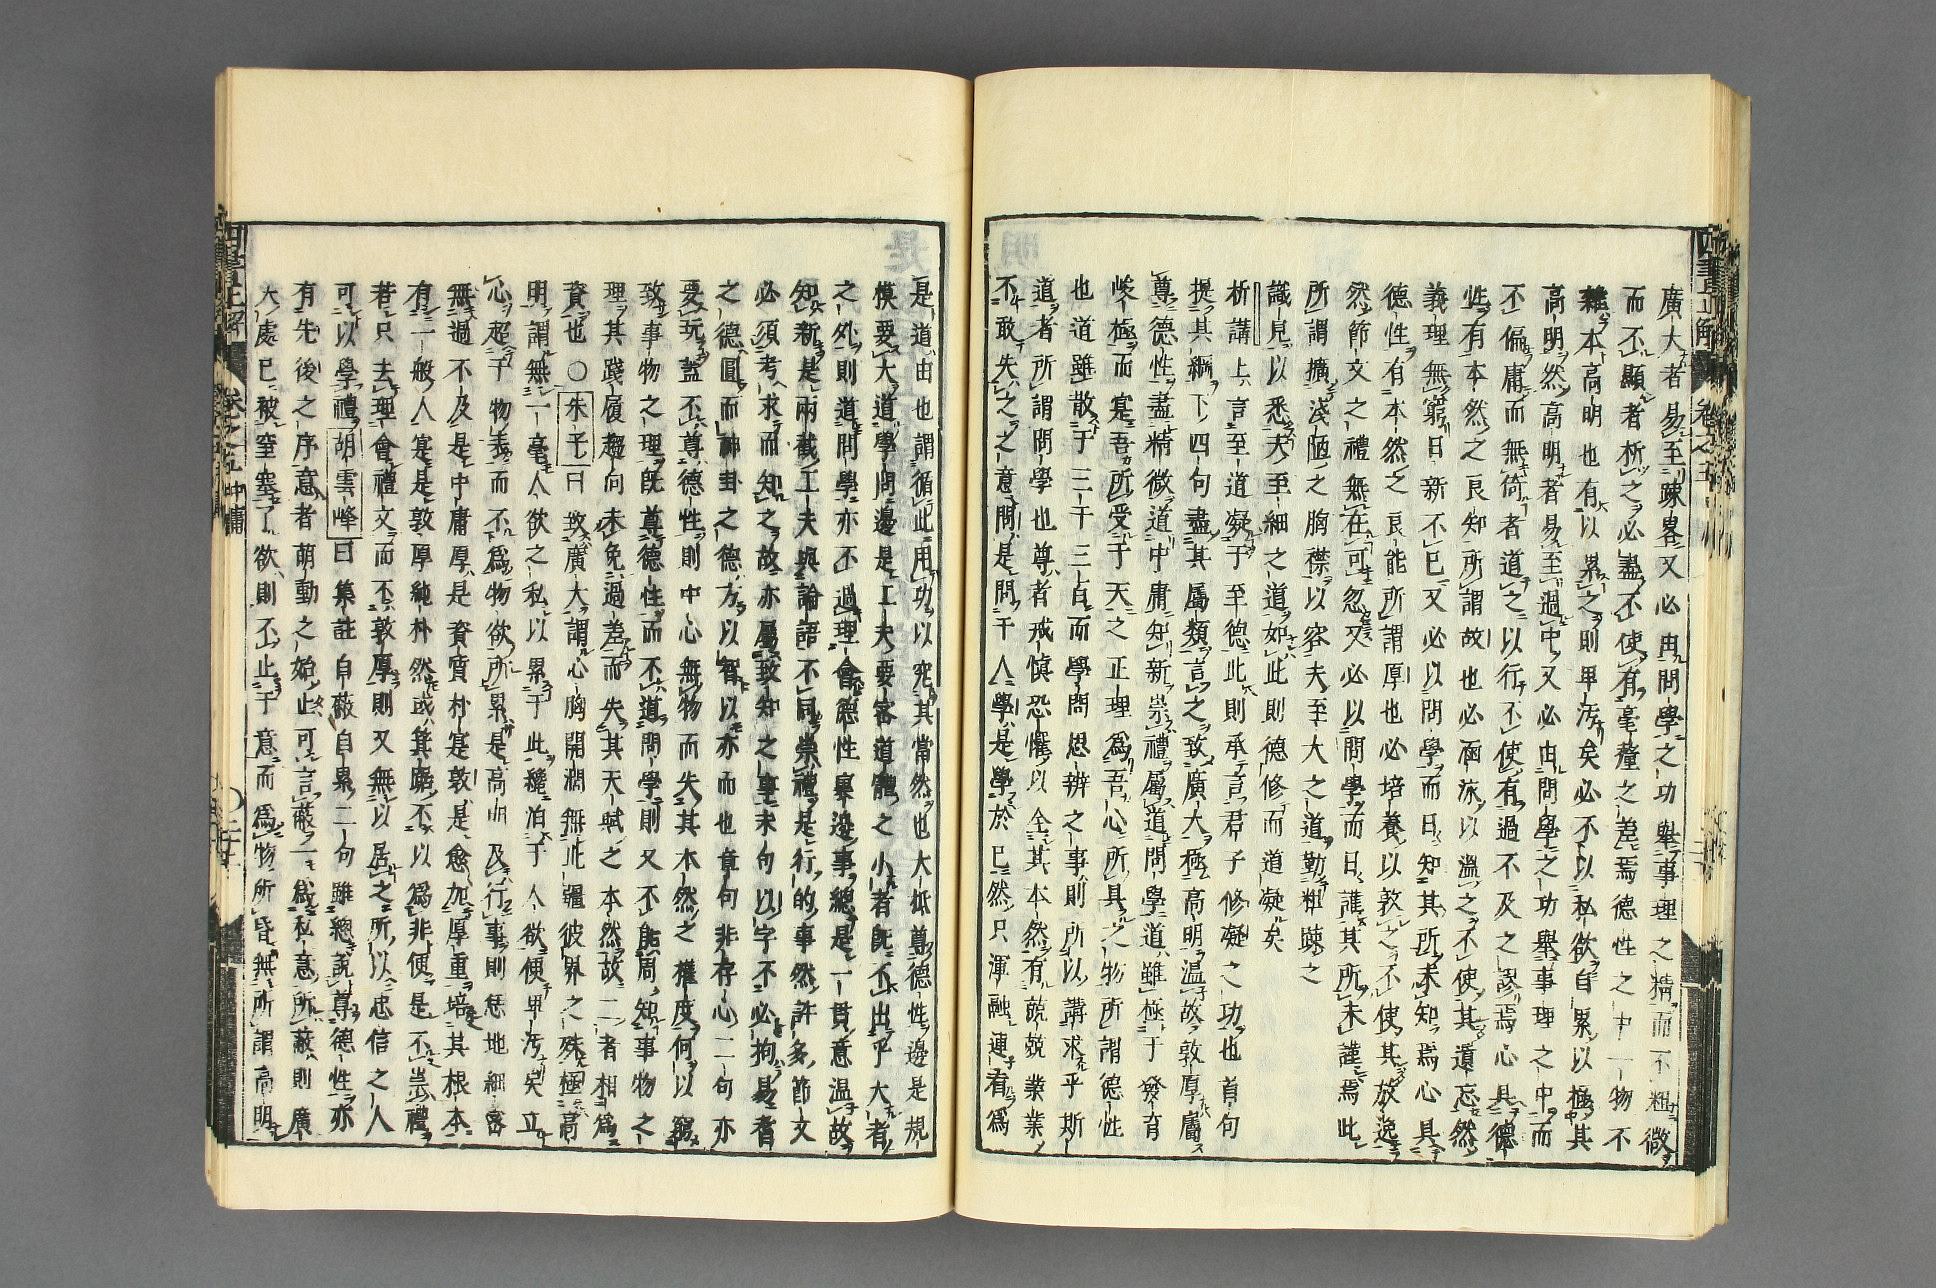 廣大者易至踈畧又必由問學之功舉事理之精而不粗微
而不顯者析之必盡不使有毫釐之差焉德性之中一物不
雜本高明也有以累之則卑汚矣必不以私欲自累以極其
高明然高明者易至過中又必由問學之功舉事理之中而
不偏庸而無倚者道之以行不使有過不及之謬焉心具德
性有本然之良知所謂故也必涵泳以溫之不使其道忘然
義理無窮日新不已又必以問學而日知其所未知焉心具
德性有本然之良能所謂厚也必培養以敦之不使其放逸
然節文之禮無在可忽又必以問學而日謹其所未謹焉此
所謂擴淺陋之胸襟以容夫至大之道勤粗踈之
識見以悉夫至細之道如此則德修而道凝矣
析講上言至道凝于至德此則承言君子修凝之功也首句
提其綱下四句盡其屬類言之致廣大極高明溫故敦厚屬
尊德性盡精微道中庸知新崇禮屬道問學道雖極于發育
峻極而寔吾所受于天之正理為吾心所具之物所謂德性
也道雖散于三千三百而學問思辨之事則所以講求乎斯
道者所謂問學也尊者戒慎恐懼以全其本然有兢兢業業
不敢失之之意問是問于人學是學於己然只渾融連看為
是道由也謂循此用功以究其當然也大抵尊德性邊是規
模要大道學問邊是工夫要密道體之小者既不出乎大者
之外則道問學亦不過理會德性舉邊事總是一貫意溫故
知新是兩截工夫與論語不同崇禮是行的事然許多節文
必須考求而知之故亦屬致知之事末句以字不必拘易耆
之德圓而神卦之德方以智以亦而也章句非存心二句亦
要玩蓋不尊德性則中心無物而失其本然之權度何以窮
致事物之理既尊德性而不道問學則又不能周知事物之
理其踐履趨向未免過差而失其天賦之本然故二者相為
資也〇朱子曰致廣大謂心胸開濶無此疆彼界之殊極高
明謂無一毫人欲之私以累于此纔泊于人欲便卑汚矣立
心超于物表而不為物欲所累是高明及行事則恁地細密
無過不及是中庸厚是資質朴寔敦是愈加厚重培其根本
有一般人寔是敦厚純朴然或箕踞不以為非便是不崇禮
若只去理會禮文而不敦厚則又無以居之所以忠信之人
可以學禮胡雲峰曰集註自蔽自累二句雖總說尊德性亦
有先後之序意者萌動之始止可言蔽一為私意所蔽則廣
大處已被窒塞了欲則不止于意而為物所昏無所謂高明